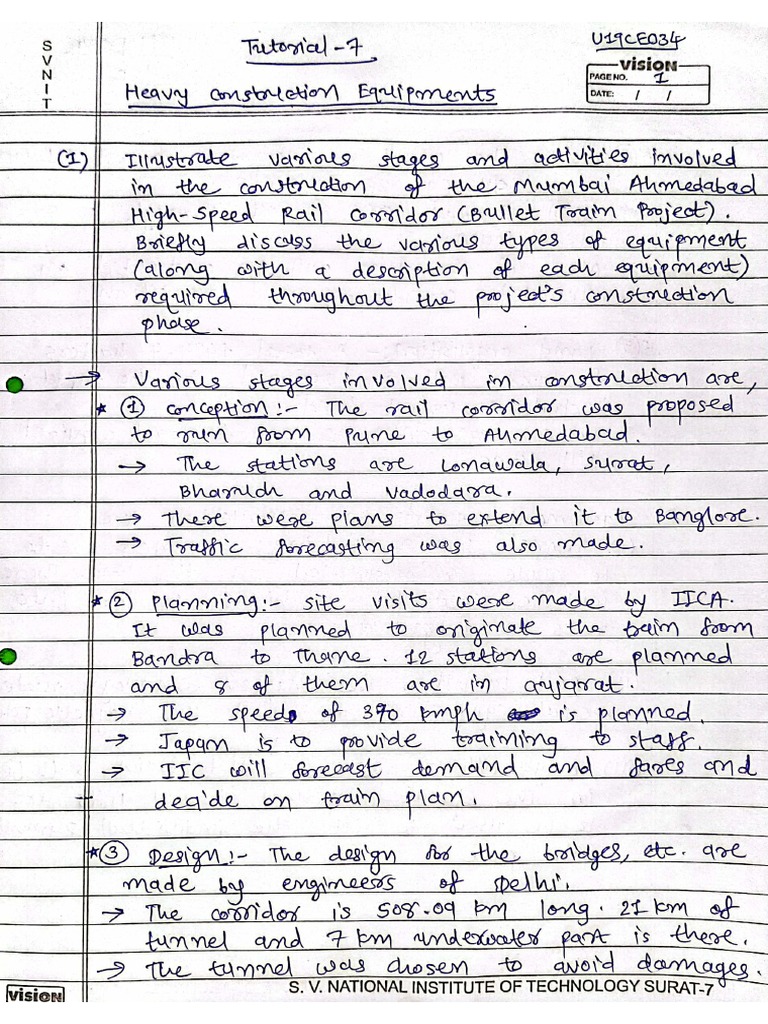 SVNIT
Tutorial-7
U19CE034
vision
PAGE NO. 1
DATE: / /
Heavy construction Equipments
(1) Illustrate various stages and activities involved
in the construction of the Mumbai Ahmedabad
High-Speed Rail corridor (Bullet Train Project).
Briefly discuss the various types of equipment
(along with a description of each equipment)
required throughout the project's construction
phase.
→ Various stages involved in construction are,
* ① conception:- The rail corridor was proposed
to run from Pune to Ahmedabad.
→ The stations are Lonawala, Surat,
Bharuch and Vadodara.
→ There were plans to extend it to Banglore.
→ Traffic forecasting was also made.
* ② Planning:- site visits were made by IICA.
It was planned to originate the train from
Bandra to Thane. 12 stations are planned
and 8 of them are in Gujarat.
→ The speed of 390 kmph is planned.
→ Japan is to provide training to staff.
→ IIC will forecast demand and fares and
decide on train plan.
* ③ Design:- The design for the bridges, etc. are
made by engineers of Delhi.
→ The corridor is 508.09 km long. 21 km of
tunnel and 7 km underwater part is there.
→ The tunnel was chosen to avoid damages.
vision
S. V. NATIONAL INSTITUTE OF TECHNOLOGY SURAT-7